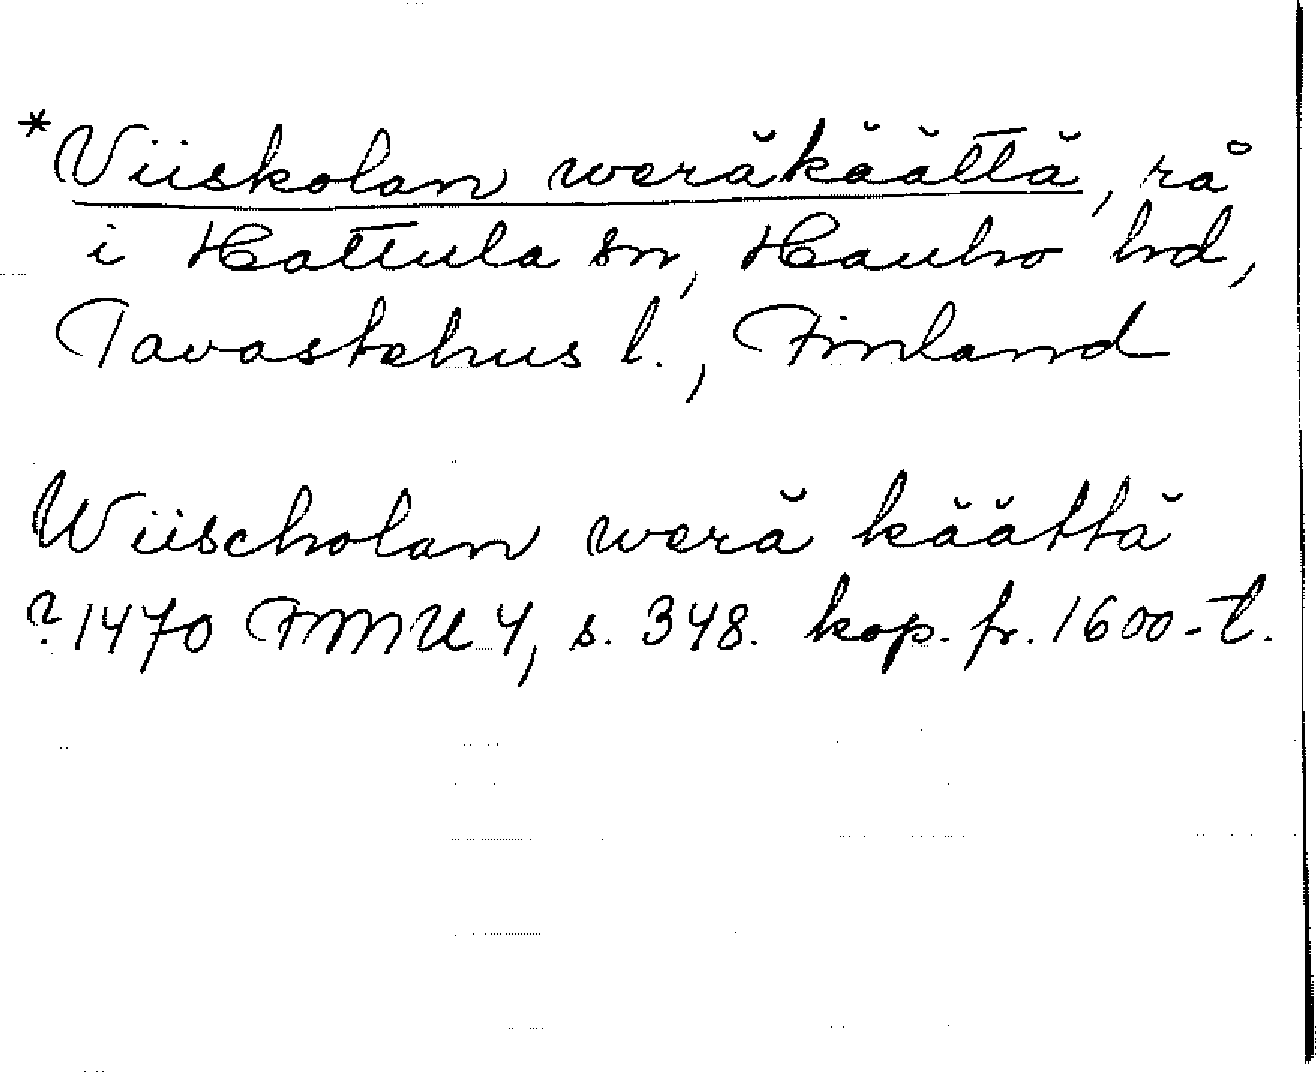 *Viiskolan weräkäättä, rå
i Hattula sn, Hauho hd,
Tavastehus l., Finland
Wiischolan werä käättä
? 1470 FMU 4, s. 348. kop. fr. 1600-t.